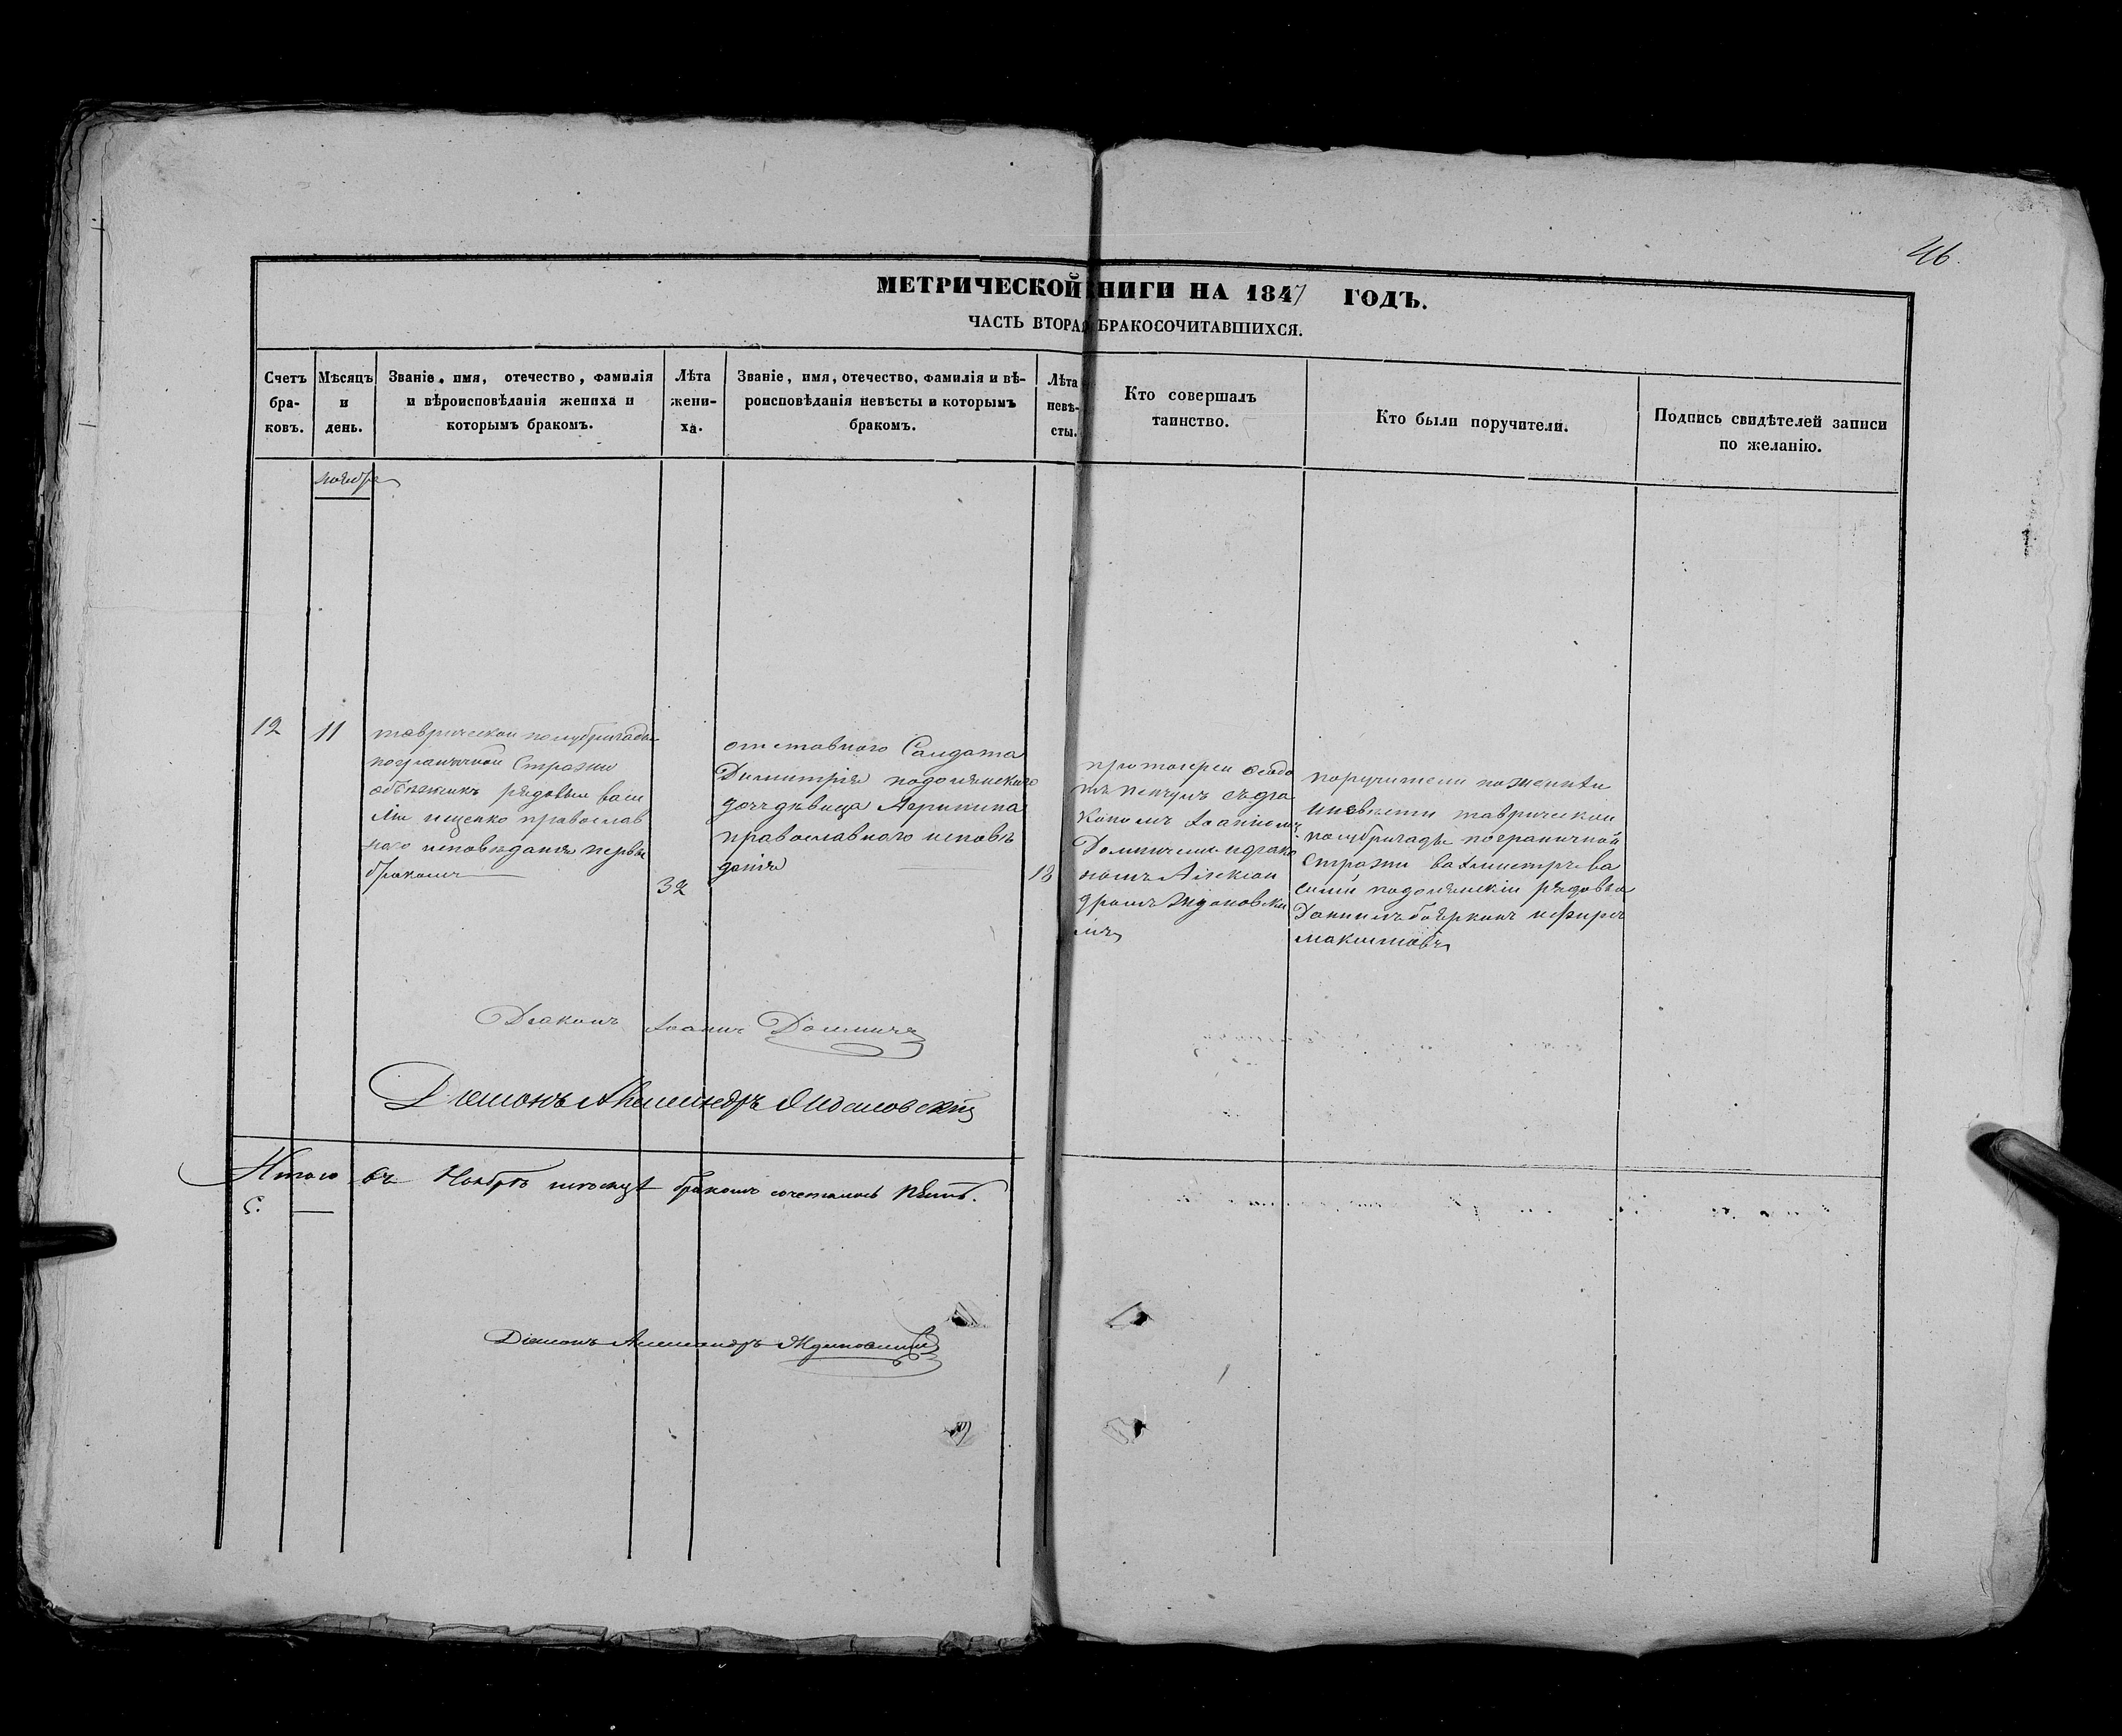 46.
МЕТРИЧЕСКОЙ НИГИ НА 1847 ГОДЪ.
ЧАСТЬ ВТОРАЯ БРАКОСОЧИТАВШИХСЯ.
Счетъ бра-ковъ.
Мѣсяцъ и день.
Званіе, имя, отечество, фамилія и вѣроисповѣданія жениха и которымъ бракомъ.
Лѣта жени-ха.
Званіе, имя, отечество, фамилія и вѣ-роисповѣданія невѣсты и которымъ бракомъ.
Лѣта невѣ-сты.
Кто совершалъ таинство.
Кто были поручители.
Подпись свидѣтелей записи по желанію.
ноябрь
12
11
таврической полубригады
пограничной Стражи
объѣжчикъ рядовый васи
лій ищенко православ
наго исповѣданія первы
бракомъ
32
отставного Салдата
Димитрія подолянскаго
дочь дѣвица Агрипина
православного исповѣ
данія
18
протоіерей
съ діа
кономъ Іоанномъ
Домничемъ и діако
номъ Алексан
дромъ Ждановски
мъ
поручители по женихѣ
и невѣсти таврической
полубригады пограничной
Стражи вахмистръ ва
силий подолянскій рядовые
Даниилъ
Діаконъ Іоаннъ Домничъ
Діаконъ Александръ Ждановскій
Итого въ Ноябрѣ мѣсяцѣ бракомъ сочеталось пять.
5.
Діаконъ Александръ Ждановский